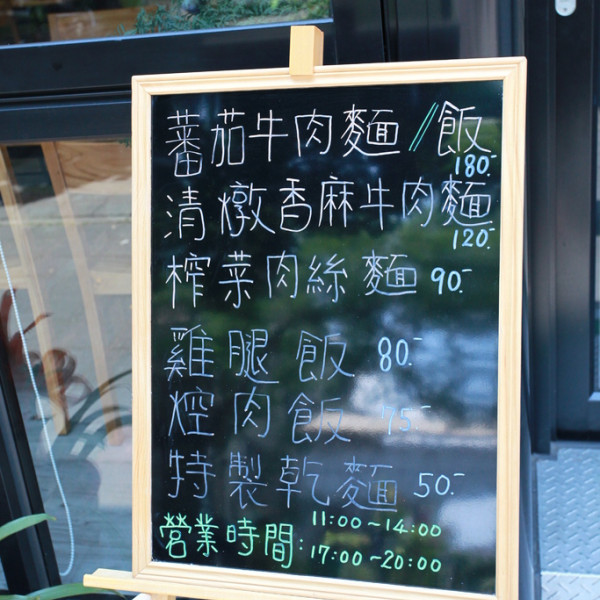 蕃茄牛肉麵//飯
180.-
清燉香麻牛肉麵
120.-
榨菜肉絲麵 90.-
雞腿飯 80.-
焢肉飯 75.-
特製乾麵 50.-
營業時間: 11:00~14:00
17:00~20:00